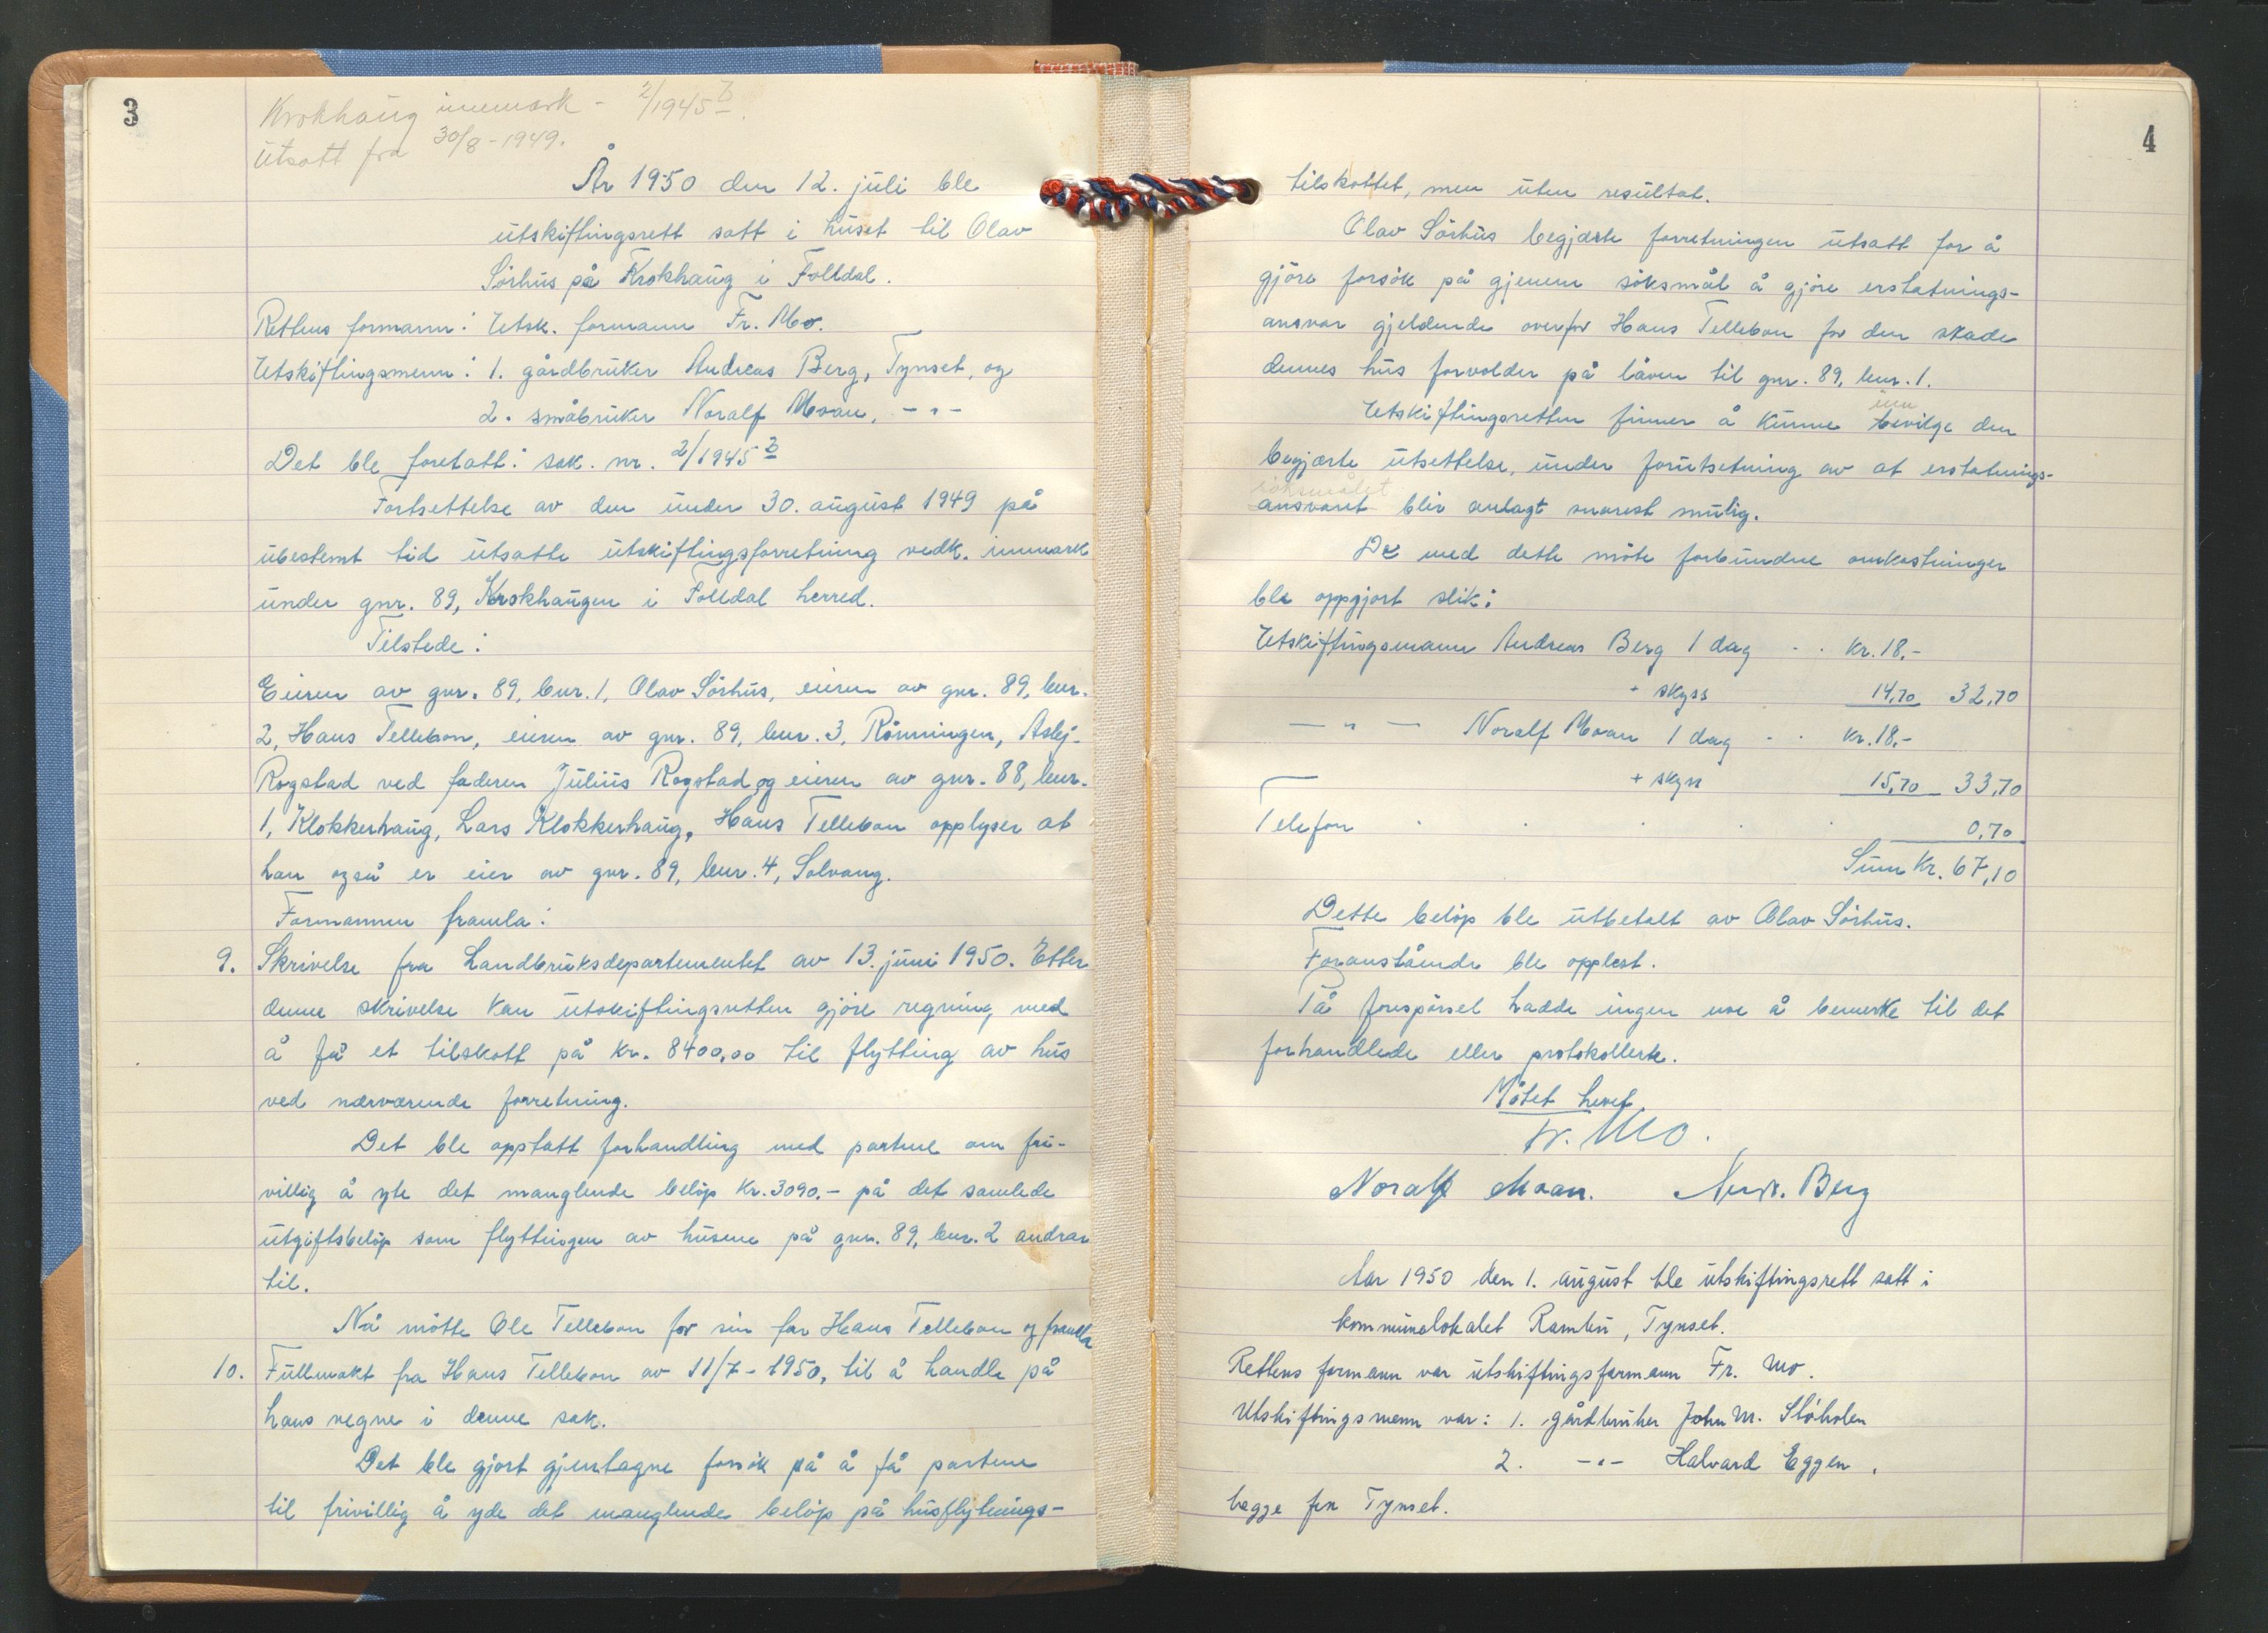 3
Krokhaug innmark - 2/1945 b.
Utsatt fra 30/8-1949.
År 1950 den 12. juli ble
utskiftingsrett satt i huset til Olav
Sörhus på Krokhaug i Folldal.
Rettens formann: Utsk. formann Fr. Mo.
Utskiftingsmenn: 1. gårdbruker Andreas Berg, Tynset, og
2. småbruker Noralf Moan, -"-
Det ble foretatt: sak. nr. 2/1945 b
Fortsettelse av den under 30. august 1949 på
ubestemt tid utsatte utskiftingsforretning vedk. innmark
under gnr. 89, Krokhaugen i Folldal herred.
Tilstede:
Eieren av gnr. 89, bnr. 1, Olav Sörhus, eieren av gnr. 89, bnr.
2, Hans Tellebon, eieren av gnr. 89, bnr. 3, Rönningen, Asbj.
Rogstad ved faderen Julius Rogstad og eieren av gnr. 88, bnr.
1, Klokkerhaug, Lars Klokkerhaug. Hans Tellebon opplyser at
han også er eier av gnr. 89, bnr. 4, Solvang.
Formannen framla:
9. Skrivelse fra Landbruksdepartementet av 13. juni 1950. Etter
denne skrivelse kan utskiftingsretten gjöre regning med
å få et tilskott på kr. 8400,00 til flytting av hus
ved nærværende forretning.
Det ble opptatt forhandling med partene om fri-
villig å yte det manglende belöp kr. 3090.- på det samlede
utgiftsbelöp som flyttingen av husene på gnr. 89, bnr. 2 andrar
til.
Nå mötte Ole Tellebon for sin far Hans Tellebon og framla
10. Fullmakt fra Hans Tellebon av 11/7-1950, til å handle på
hans vegne i denne sak.
Det ble gjort gjentagne forsök på å få partene
til frivillig å yde det manglende belöp på husflytnings-
4
tilskottet, men uten resultat.
Olav Sörhus begjærte forretningen utsatt for å
gjöre forsök på gjennem söksmål å gjöre erstatnings-
ansvar gjeldende overfor Hans Tellebon for den skade
dennes hus forvolder på låven til gnr. 89, bnr. 1.
Utskiftingsretten finner å kunne bevilge den
begjærte utsettelse, under forutsetning av at erstatnings-
söksmålet
ansvaret blir anlagt snarest mulig.
De med dette möte forbundne omkostninger
ble oppgjort slik:
Utskiftingsmann Andreas Berg 1 dag . . kr. 18.-
+ skyss 14,70 32,70
- " - Noralf Moan 1 dag . . kr. 18.-
+ skyss 15,70 33,70
Telefon . . . . . 0,70
Sum kr. 67,10
Dette belöp ble utbetalt av Olav Sörhus.
Foranstående ble opplest.
På forespörsel hadde ingen noe å bemerke til det
forhandlede eller protokollerte.
Mötet hevet.
Fr. Mo.
Noralf Moan. Andr. Berg
Aar 1950 den 1. august ble utskiftingsrett satt i
kommunelokalet Rambu, Tynset.
Rettens formann var utskiftingsformann Fr. Mo.
Utskiftingsmenn var: 1. gårdbruker John M. Stöholen
2. -"- Halvard Eggen,
begge fra Tynset.